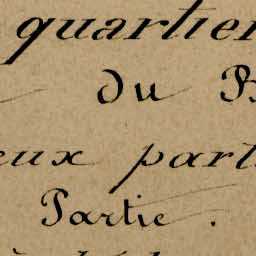 quartier
du
eux part
Partie.